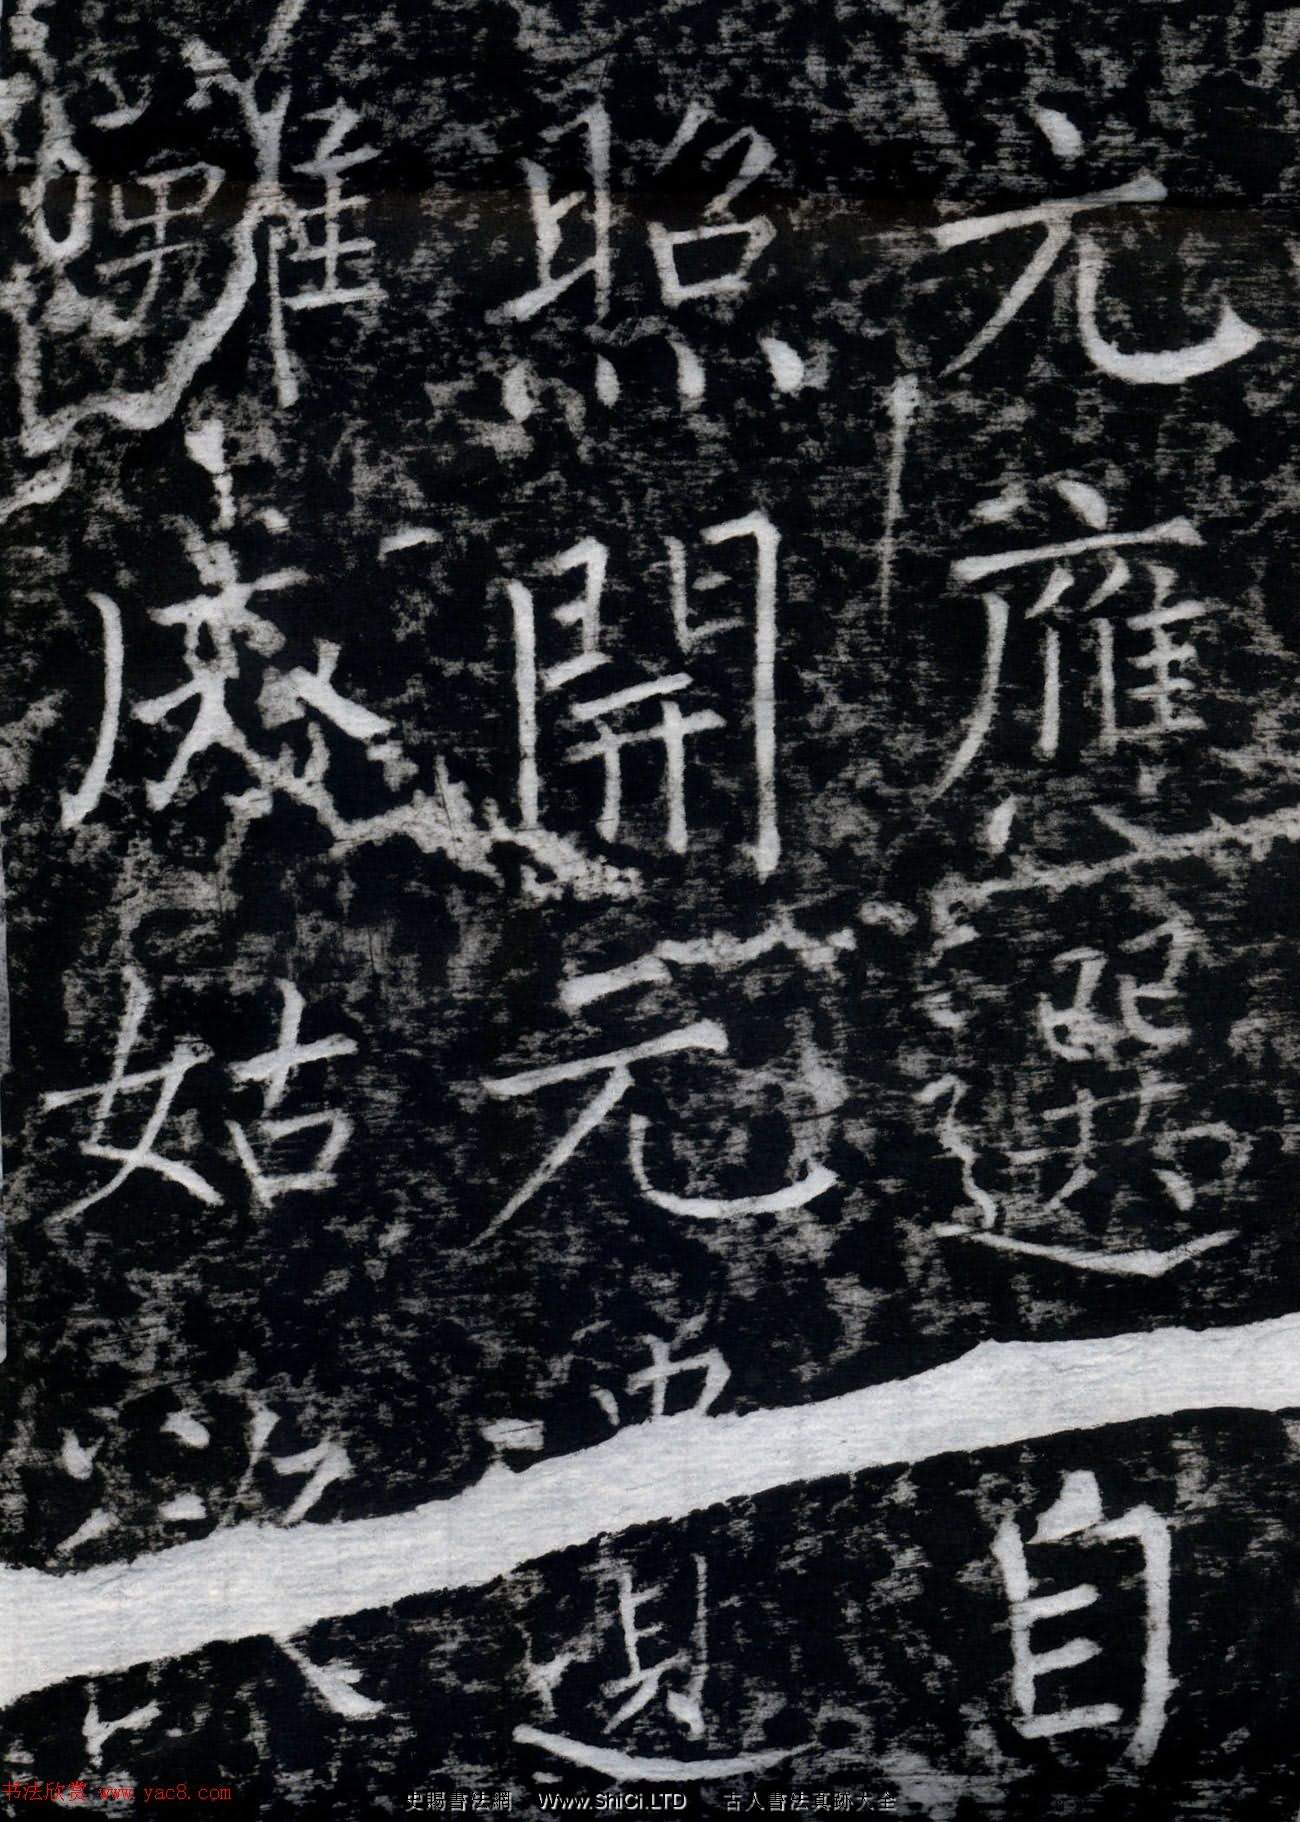 元應選自
照開元遺
難處姑欲
书法欣赏 www.yac8.com
史賜書法網 Www.ShiCi.LTD 古人書法真跡大全